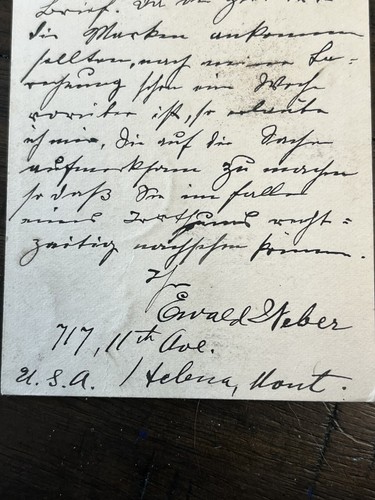 Brief. Da die Zeit
die Marken ankommen
sollten, nach meiner Be=
rechnung schon eine Woche
vorüber ist, so erlaube
ich mir, Sie auf die Sache
aufmerksam zu machen
so daß Sie im Falle
eines Irrthums recht=
zeitig nachsehen können.
Ihr
Ewald Weber
717, 11th Ave.
U.S.A. Helena, Mont.